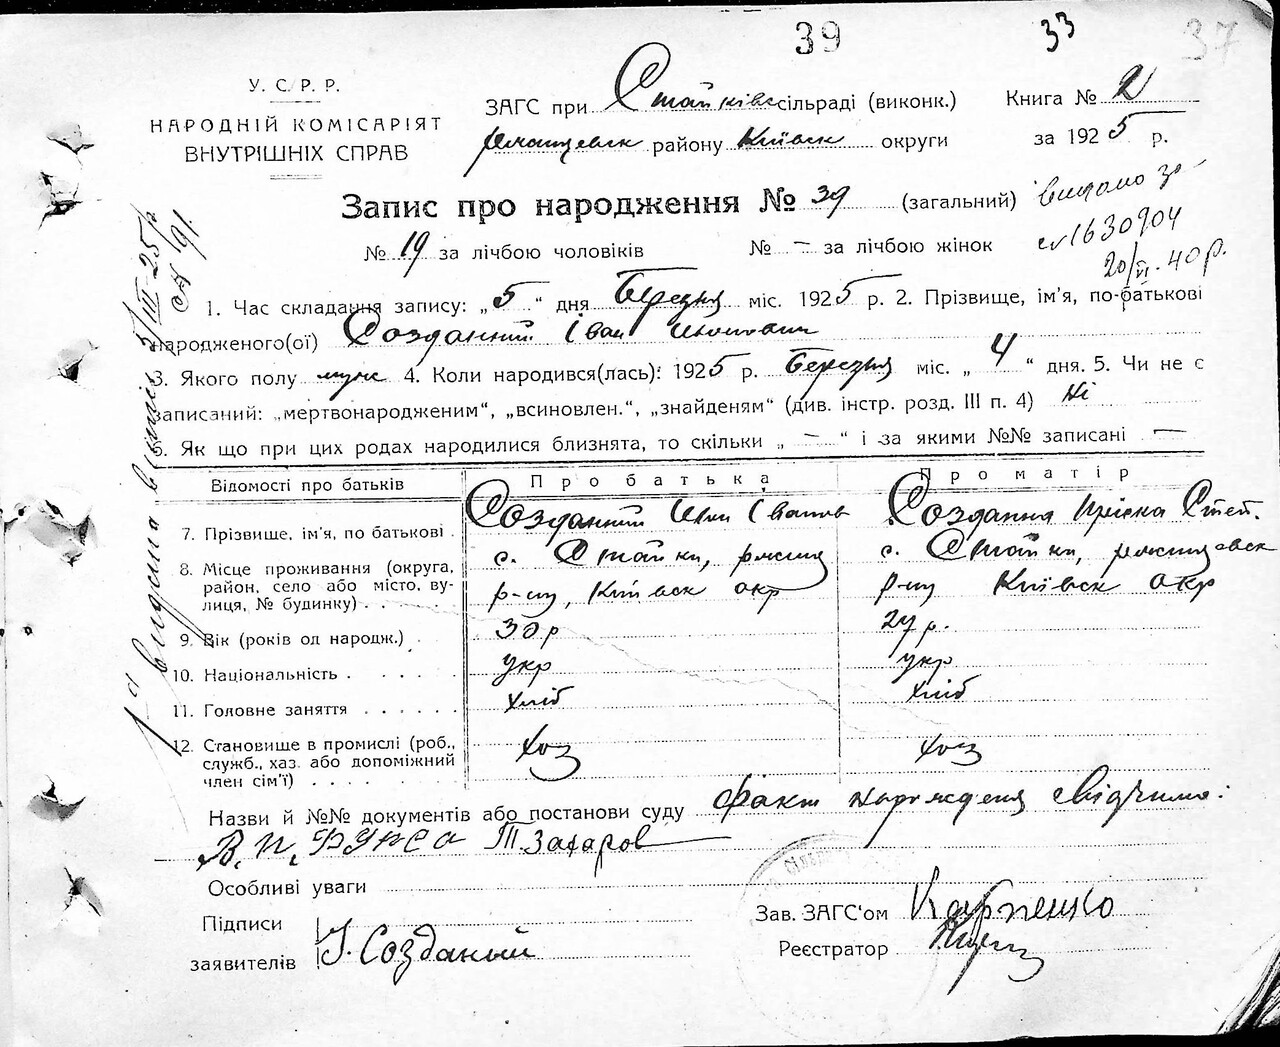 39 33 37
У. С. Р. Р.
НАРОДНІЙ КОМІСАРІЯТ
ВНУТРІШНІХ СПРАВ
ЗАГС при Стайківс сільраді (виконк.)
району Київськ округи
Книга № 2
за 1925 р.
Запис про народження № 39 (загальний)
видано
1630904
20/VI-40р.
№ 19 за лічбою чоловіків № — за лічбою жінок
1. Час складання запису: „5“ дня Березня міс. 1925 р. 2. Прізвище, ім'я, по-батькові
народженого(ої) Созданний Іван
3. Якого полу муж 4. Коли народився(лась): 1925 р. Березня міс. „4“ дня. 5. Чи не є
записаний: „мертвонародженим“, „всиновлен.“, „знайденям“ (див. інстр. розд. III п. 4) Ні
6. Як що при цих родах народилися близнята, то скільки „—“ і за якими №№ записані —
Відомості про батьків
Про батька
Про матір
7. Прізвище, ім'я, по батькові .
Созданний Ілля Іванов
Создання Степ.
8. Місце проживання (округа,
район, село або місто, ву-
лиця, № будинку) . . . .
с. Стайки,
р-ну, Київськ окр
с. Стайки,
р-ну Київськ окр
9. Вік (років од народж.) .
30р
27р.
10. Національність . . . . .
укр
укр
11. Головне заняття . . . . . .
хліб
хліб
12. Становище в промислі (роб.,
служб., хаз. або допоміжний
член сім'ї) . . . . . . .
хоз
хоз
Назви й №№ документів або постанови суду Факт народження свідчимо:
Т. Захаров
Особливі уваги
Підписи
заявителів І. Созданий
Зав. ЗАГС'ом Карпенко
Реєстратор
видана 5/III-25р